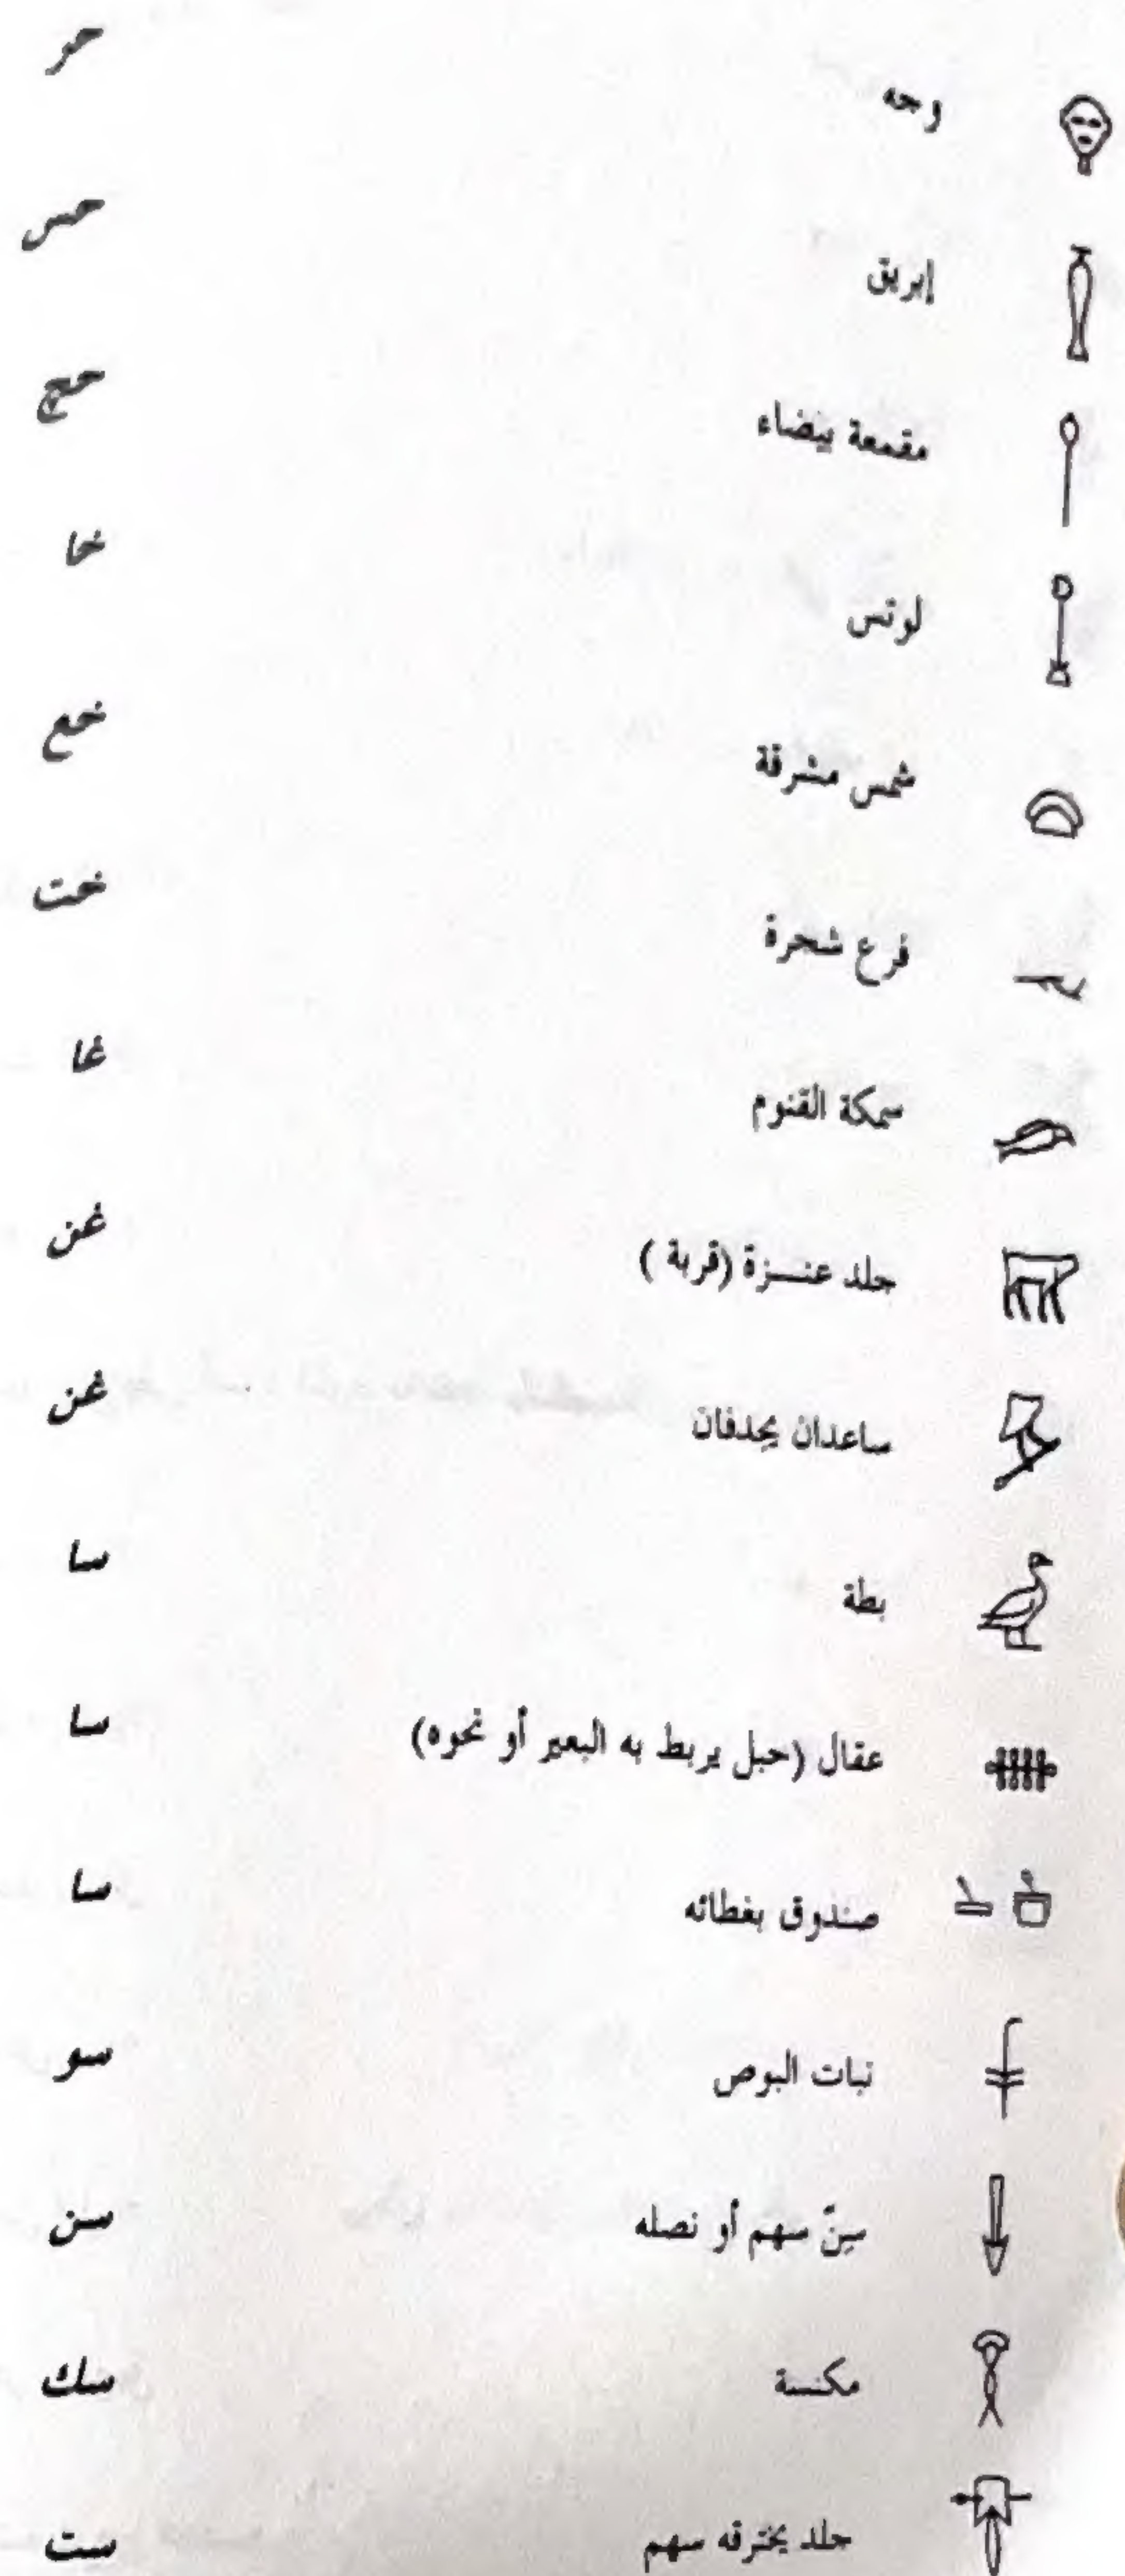 وجه حر
إبريق حس
مقمعة بيضاء حچ
لوتس خا
شمس مشرقة خع
فرع شجرة خت
سمكة القنوم غا
جلد عنـزة (قربة ) غن
ساعدان يجدفان غن
بطة سا
عقال (حبل يربط به البعير أو نحوه) سا
صندوق بغطائه سا
نبات البوص سو
سِنّ سهم أو نصله سن
مكنسة سك
جلد يخترقه سهم ست